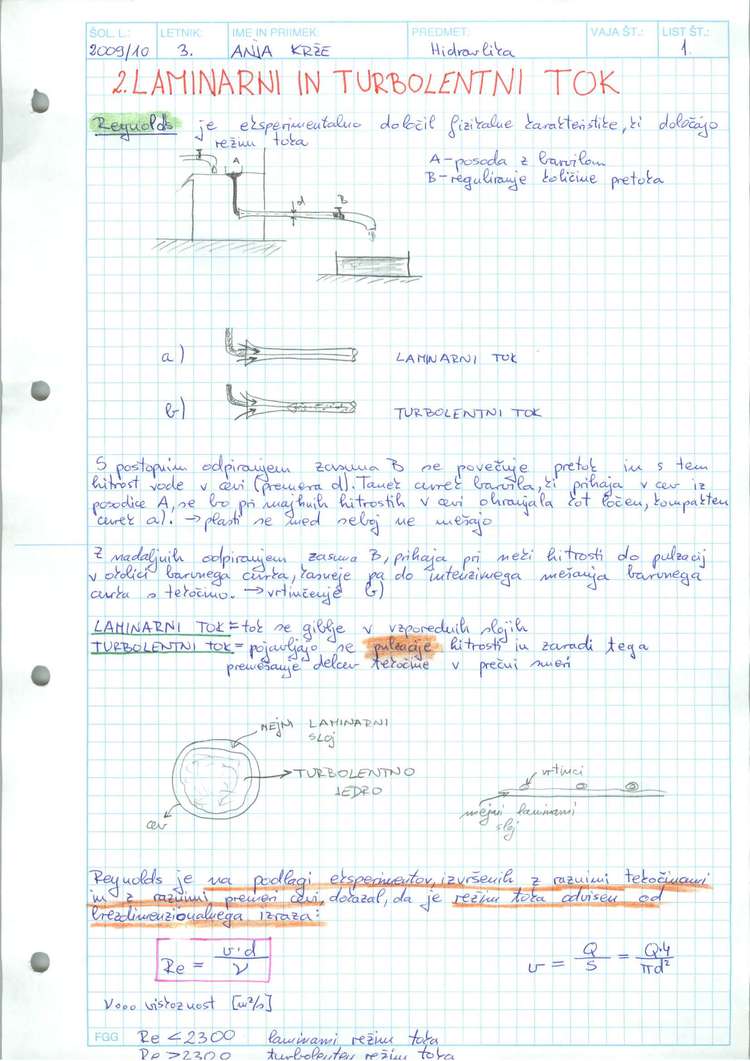 ŠOL. L.: LETNIK: IME IN PRIIMEK: PREDMET: VAJA ŠT.: LIST ŠT.:
2009/10 3. ANJA KRŽE Hidravlika 1.
2. LAMINARNI IN TURBOLENTNI TOK
Reynolds je eksperimentalno določil fizikalne karakteristike, ki določajo
režim toka
A - posoda z barvilom
B - reguliranje količine pretoka
A
d
B
a) LAMINARNI TOK
b) TURBOLENTNI TOK
S postopnim odpiranjem zasuna B se povečuje pretok in s tem
hitrost vode v cevi (premera d). Tanek curek barvila, ki prihaja v cev iz
posodice A, se bo pri majhnih hitrostih v cevi ohranjala kot ločen, kompakten
curek a). → plasti se med seboj ne mešajo
Z nadaljnih odpiranjem zasuna B, prihaja pri neki hitrosti do pulzacij
v okolici barvnega curka, kasneje pa do intenzivnega mešanja barvnega
curka s tekočino. → vrtinčenje b)
LAMINARNI TOK = tok se giblje v vzporednih slojih
TURBOLENTNI TOK = pojavljajo se pulzacije hitrosti in zaradi tega
premešanje delcev tekočine v prečni smeri
MEJNI LAMINARNI
SLOJ
TURBOLENTNO
JEDRO
cev
vrtinci
mejni laminarni
sloj
Reynolds je na podlagi eksperimentov, izvršenih z raznimi tekočinami
in z raznimi premeri cevi, dokazal, da je režim toka odvisen od
brezdimenzionalnega izraza:
Re = v·d / ν
v = Q / S = Q·4 / πd²
ν... viskoznost [m²/s]
FGG Re < 2300 laminarni režim toka
Re > 2300 turbolenten režim toka